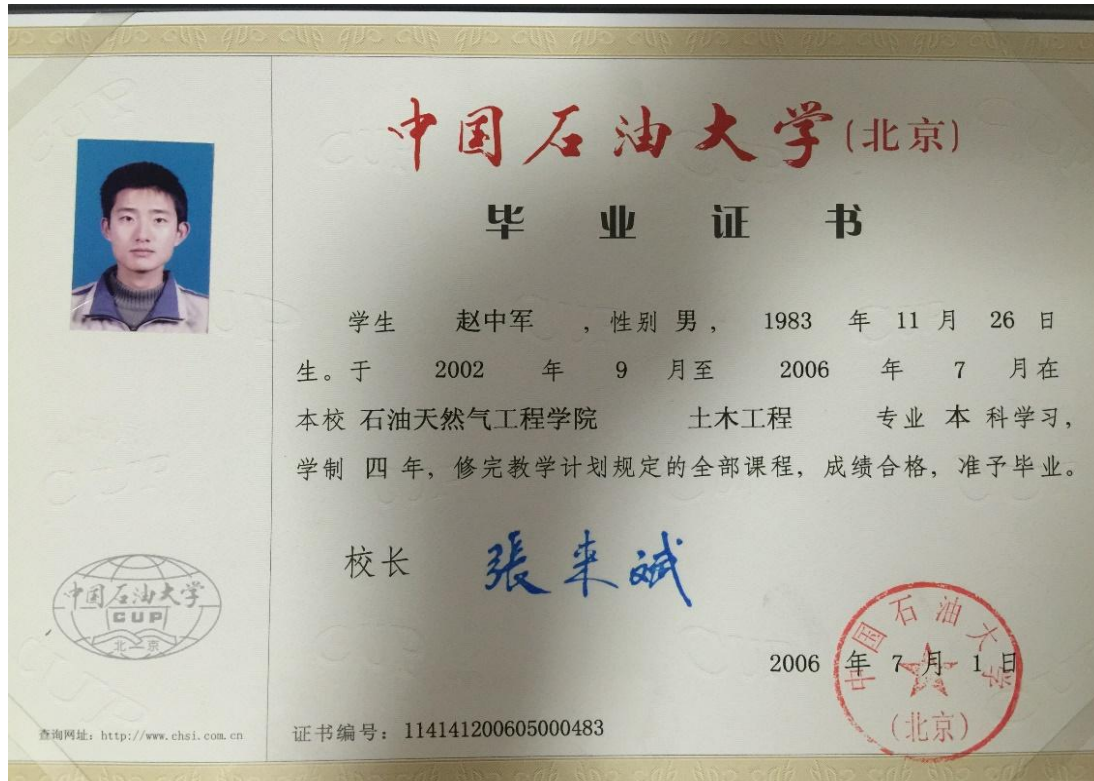 中国石油大学(北京)
毕业证书
学生 赵中军 ,性别 男, 1983 年 11 月 26 日
生。于 2002 年 9 月至 2006 年 7 月在
本校 石油天然气工程学院 土木工程 专业 本 科学习,
学制 四 年,修完教学计划规定的全部课程,成绩合格,准予毕业。
校长 張来斌
中国石油大学
CUP
北京
2006 年 7 月 1 日
中国石油大学
(北京)
查询网址:http://www.chsi.com.cn
证书编号:114141200605000483